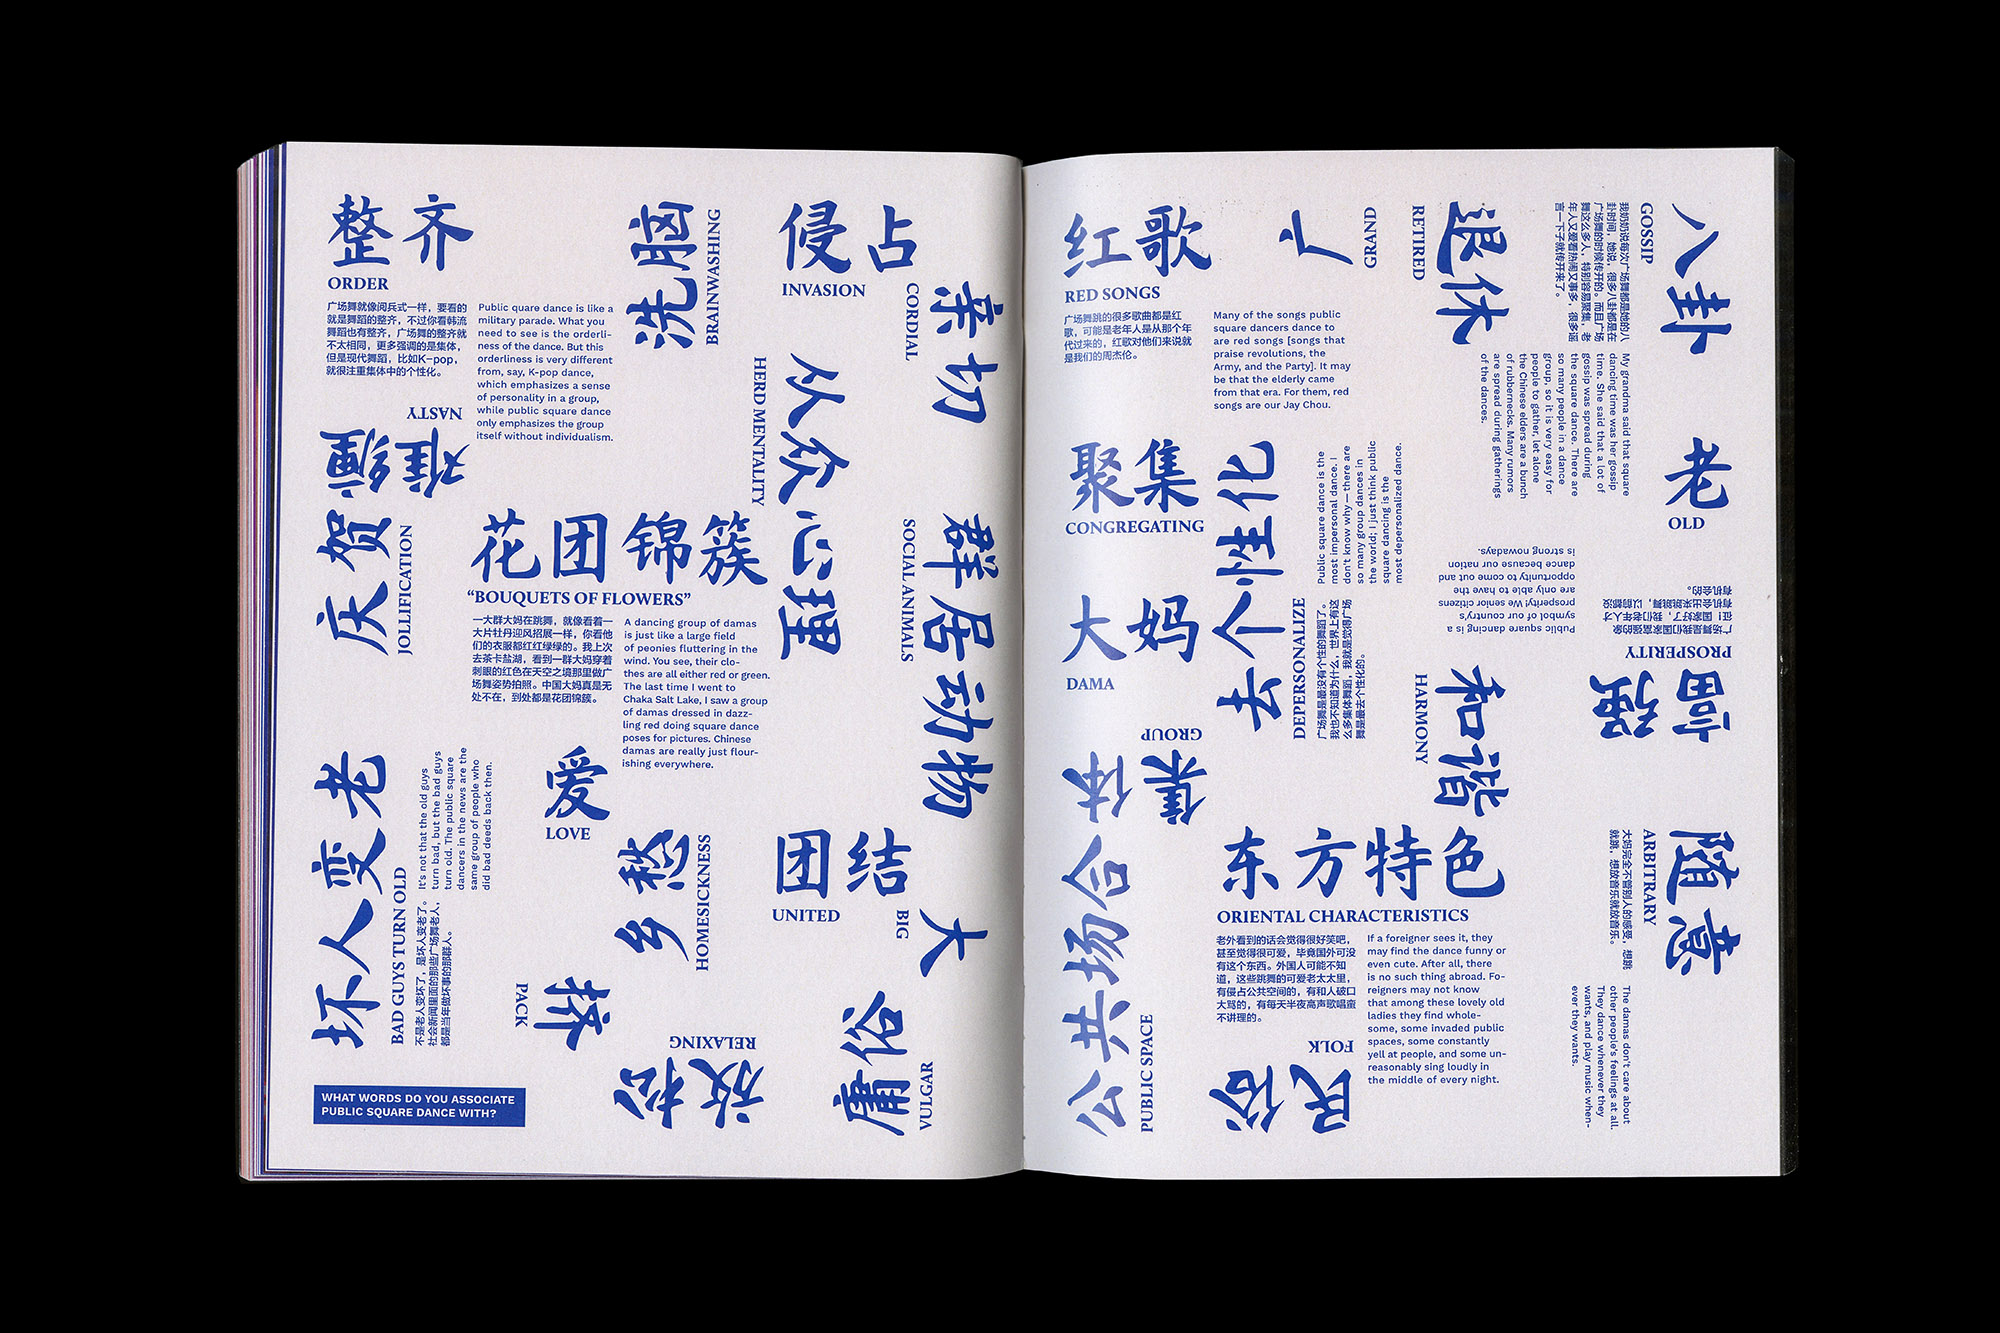 整齐
ORDER
广场舞就像阅兵式一样，要看的
就是舞蹈的整齐，不过你看韩流
舞蹈也有整齐，广场舞的整齐就
不太相同，更多强调的是集体，
但是现代舞蹈，比如K-pop，
就很注重集体中的个性化。
Public quare dance is like a
military parade. What you
need to see is the orderli-
ness of the dance. But this
orderliness is very different
from, say, K-pop dance,
which emphasizes a sense
of personality in a group,
while public square dance
only emphasizes the group
itself without individualism.
洗脑
BRAINWASHING
侵占
INVASION
亲切
CORDIAL
难缠
NASTY
从众心理
HERD MENTALITY
庆贺
JOLLIFICATION
花团锦簇
“BOUQUETS OF FLOWERS”
一大群大妈在跳舞，就像看着一
大片牡丹迎风招展一样，你看他
们的衣服都红红绿绿的。我上次
去茶卡盐湖，看到一群大妈穿着
刺眼的红色在天空之境那里做广
场舞姿势拍照。中国大妈真是无
处不在，到处都是花团锦簇。
A dancing group of damas
is just like a large field
of peonies fluttering in the
wind. You see, their clo-
thes are all either red or green.
The last time I went to
Chaka Salt Lake, I saw a group
of damas dressed in dazz-
ling red doing square dance
poses for pictures. Chinese
damas are really just flour-
ishing everywhere.
群居动物
SOCIAL ANIMALS
坏人变老
BAD GUYS TURN OLD
不是老人变坏了，是坏人变老了。
社会新闻里面的那些广场舞老人，
都是当年做坏事的那群人。
It's not that the old guys
turn bad, but the bad guys
turn old. The public square
dancers in the news are the
same group of people who
did bad deeds back then.
爱
LOVE
乡愁
HOMESICKNESS
团结
UNITED
大
BIG
挤
PACK
放松
RELAXING
庸俗
VULGAR
WHAT WORDS DO YOU ASSOCIATE
PUBLIC SQUARE DANCE WITH?
红歌
RED SONGS
广场舞跳的很多歌曲都是红
歌，可能是老年人是从那个年
代过来的，红歌对他们来说就
是我们的周杰伦。
Many of the songs public
square dancers dance to
are red songs [songs that
praise revolutions, the
Army, and the Party]. It may
be that the elderly came
from that era. For them, red
songs are our Jay Chou.
广
GRAND
退休
RETIRED
八卦
GOSSIP
我奶奶说每次广场舞都是她的八
卦时间，她说，很多八卦都是在
广场舞的时候传开的。而且广场
舞这么多人，特别容易聚集，老
年人又爱看热闹又事多，很多谣
言一下子就传开来了。
My grandma said that square
dancing time was her gossip
time. She said that a lot of
gossip was spread during
the square dance. There are
so many people in a dance
group, so it is very easy for
people to gather, let alone
the Chinese elders are a bunch
of rubbernecks. Many rumors
are spread during gatherings
of the dances.
聚集
CONGREGATING
去个性化
DEPERSONALIZE
广场舞是最没有个性的舞蹈了。
我也不知道为什么，世界上有这
么多集体舞蹈，我就是觉得广场
舞是最去个性化的。
Public square dance is the
most impersonal dance. I
don't know why—there are
so many group dances in
the world; I just think public
square dancing is the
most depersonalized dance.
老
OLD
大妈
DAMA
富强
PROSPERITY
广场舞是我们国家富强的象
征！国家好了，我们老年人才
有机会出来跳跳舞，以前都没
有机会的。
Public square dancing is a
symbol of our country's
prosperity! We senior citizens
are only able to have the
opportunity to come out and
dance because our nation
is strong nowadays.
集体
GROUP
和谐
HARMONY
公共场合
PUBLIC SPACE
东方特色
ORIENTAL CHARACTERISTICS
老外看到的话会觉得很好笑吧，
甚至觉得很可爱，毕竟国外可没
有这个东西。外国人可能不知
道，这些跳舞的可爱老太太里，
有侵占公共空间的，有和人破口
大骂的，有每天半夜高声歌唱蛮
不讲理的。
If a foreigner sees it, they
may find the dance funny or
even cute. After all, there
is no such thing abroad. Fo-
reigners may not know
that among these lovely old
ladies they find whole-
some, some invaded public
spaces, some constantly
yell at people, and some un-
reasonably sing loudly in
the middle of every night.
随意
ARBITRARY
大妈完全不管别人的感受，想跳
就跳，想放音乐就放音乐。
The damas don't care about
other people's feelings at all.
They dance whenever they
wants, and play music when-
ever they wants.
民俗
FOLK